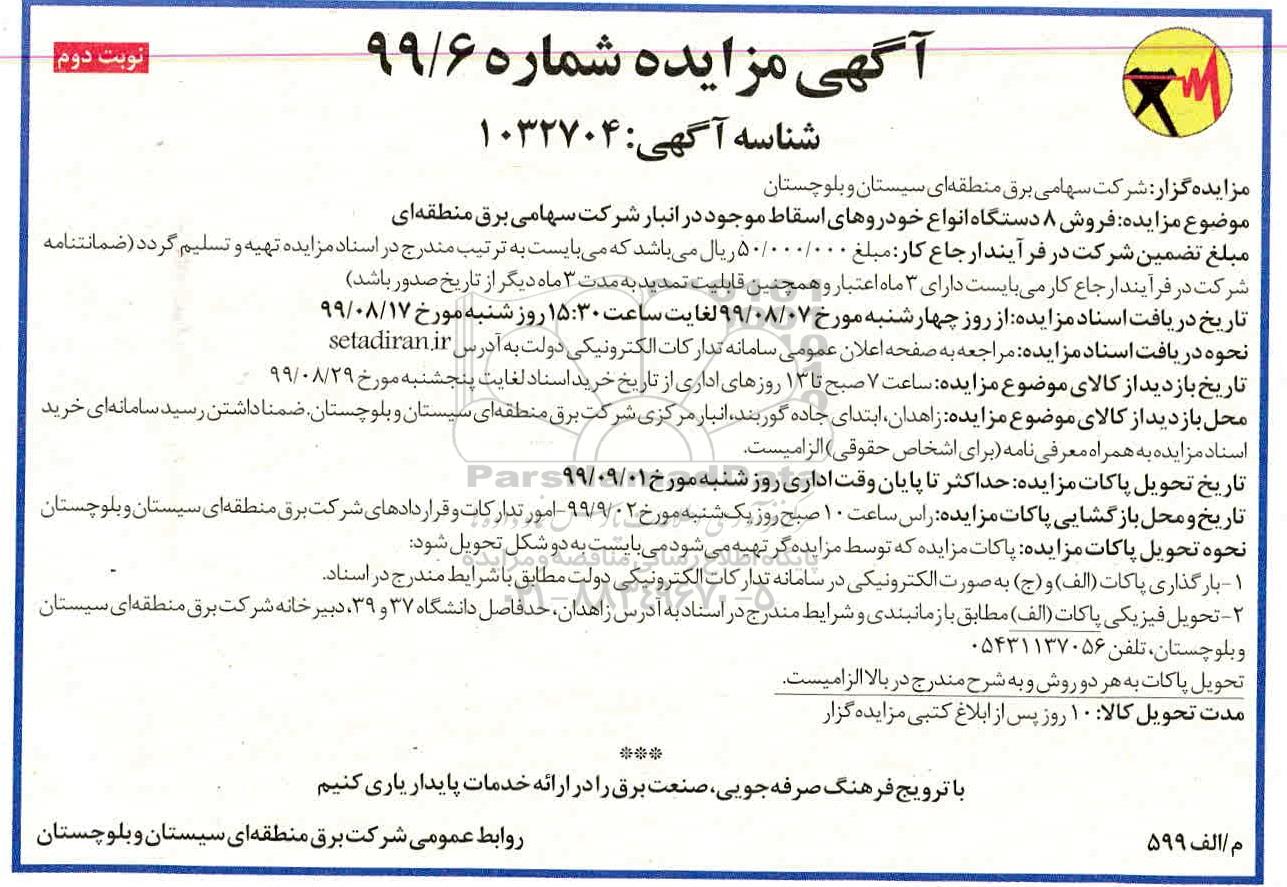 نوبت دوم
آگهی مزایده شماره ۹۹/۶
شناسه آگهی: ۱۰۳۲۷۰۴
مزایده‌گزار: شرکت سهامی برق منطقه‌ای سیستان و بلوچستان
موضوع مزایده: فروش ۸ دستگاه انواع خودروهای اسقاط موجود در انبار شرکت سهامی برق منطقه‌ای
مبلغ تضمین شرکت در فرآیند ارجاع کار: مبلغ ۵۰/۰۰۰/۰۰۰ ریال می‌باشد که می‌بایست به ترتیب مندرج در اسناد مزایده تهیه و تسلیم گردد (ضمانتنامه
شرکت در فرآیند ارجاع کار می‌بایست دارای ۳ ماه اعتبار و همچنین قابلیت تمدید به مدت ۳ ماه دیگر از تاریخ صدور باشد)
تاریخ دریافت اسناد مزایده: از روز چهارشنبه مورخ ۹۹/۰۸/۰۷ لغایت ساعت ۱۵:۳۰ روز شنبه مورخ ۹۹/۰۸/۱۷
نحوه دریافت اسناد مزایده: مراجعه به صفحه اعلان عمومی سامانه تدارکات الکترونیکی دولت به آدرس setadiran.ir
تاریخ بازدید از کالای موضوع مزایده: ساعت ۷ صبح تا ۱۳ روزهای اداری از تاریخ خرید اسناد لغایت پنجشنبه مورخ ۹۹/۰۸/۲۹
محل بازدید از کالای موضوع مزایده: زاهدان، ابتدای جاده گوربند، انبار مرکزی شرکت برق منطقه‌ای سیستان و بلوچستان. ضمنا داشتن رسید سامانه‌ای خرید
اسناد مزایده به همراه معرفی نامه (برای اشخاص حقوقی) الزامیست.
تاریخ تحویل پاکات مزایده: حداکثر تا پایان وقت اداری روز شنبه مورخ ۹۹/۰۹/۰۱
تاریخ و محل بازگشایی پاکات مزایده: راس ساعت ۱۰ صبح روز یک‌شنبه مورخ ۹۹/۹/۰۲- امور تدارکات و قراردادهای شرکت برق منطقه‌ای سیستان و بلوچستان
نحوه تحویل پاکات مزایده: پاکات مزایده که توسط مزایده‌گر تهیه می‌شود می‌بایست به دو شکل تحویل شود:
۱- بارگذاری پاکات (الف) و (ج) به صورت الکترونیکی در سامانه تدارکات الکترونیکی دولت مطابق با شرایط مندرج در اسناد.
۲- تحویل فیزیکی پاکات (الف) مطابق بازمانبندی و شرایط مندرج در اسناد به آدرس زاهدان، حدفاصل دانشگاه ۳۷ و ۳۹، دبیرخانه شرکت برق منطقه‌ای سیستان
و بلوچستان، تلفن ۰۵۴۳۱۱۳۷۰۵۶
تحویل پاکات به هر دو روش و به شرح مندرج در بالا الزامیست.
مدت تحویل کالا: ۱۰ روز پس از ابلاغ کتبی مزایده‌گزار
***
با ترویج فرهنگ صرفه‌جویی، صنعت برق را در ارائه خدمات پایدار یاری کنیم
روابط عمومی شرکت برق منطقه‌ای سیستان و بلوچستان
م/الف ۵۹۹
ParsNamadData
پایگاه اطلاع رسانی مناقصه و مزایده
۰۲۱-۸۸۳۴۹۶۷۰-۵